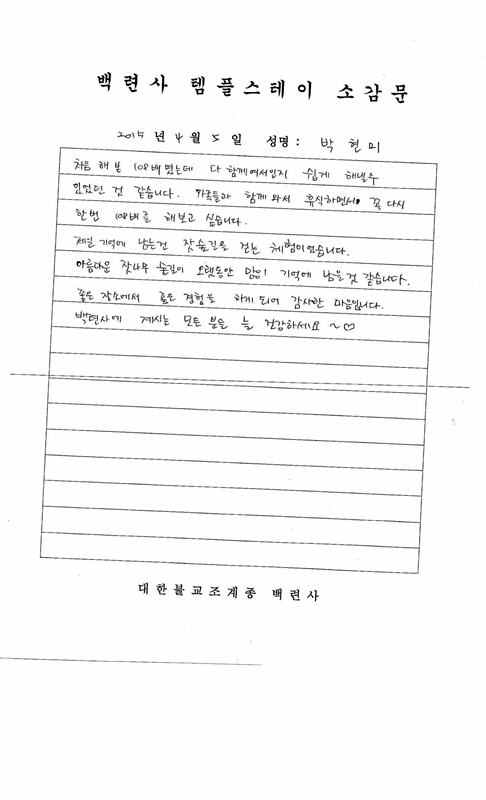 백련사 템플스테이 소감문
2015 년 4 월 5 일 성명 : 박현미
처음 해본 108배 였는데 다 함께여서인지 쉽게 해낼수
있었던 것 같습니다. 가족들과 함께 와서 휴식하면서, 꼭 다시
한번 108배를 해보고 싶습니다.
제일 기억에 남는건 잣숲길을 걷는 체험이였습니다.
아름다운 잣나무 숲길이 오랫동안 많이 기억에 남을것 같습니다.
좋은 장소에서 좋은 경험을 하게 되어 감사한 마음입니다.
백련사에 계시는 모든 분들 늘 건강하세요 ~♡
대한불교조계종 백련사